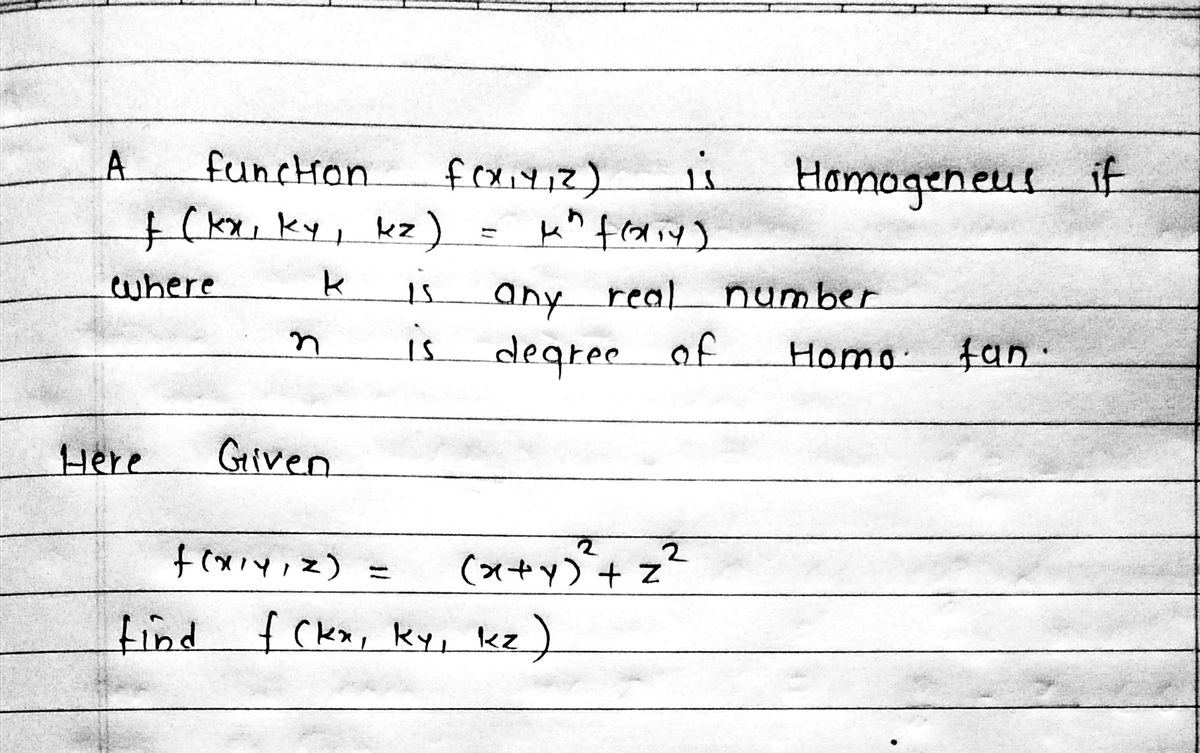 A function f(x,y,z) is Homogeneus if
f(kx, ky, kz) = k^n f(x,y)
where k is any real number
n is degree of Homo. fun.
Here Given
f(x,y,z) = (x+y)² + z²
find f(kx, ky, kz)